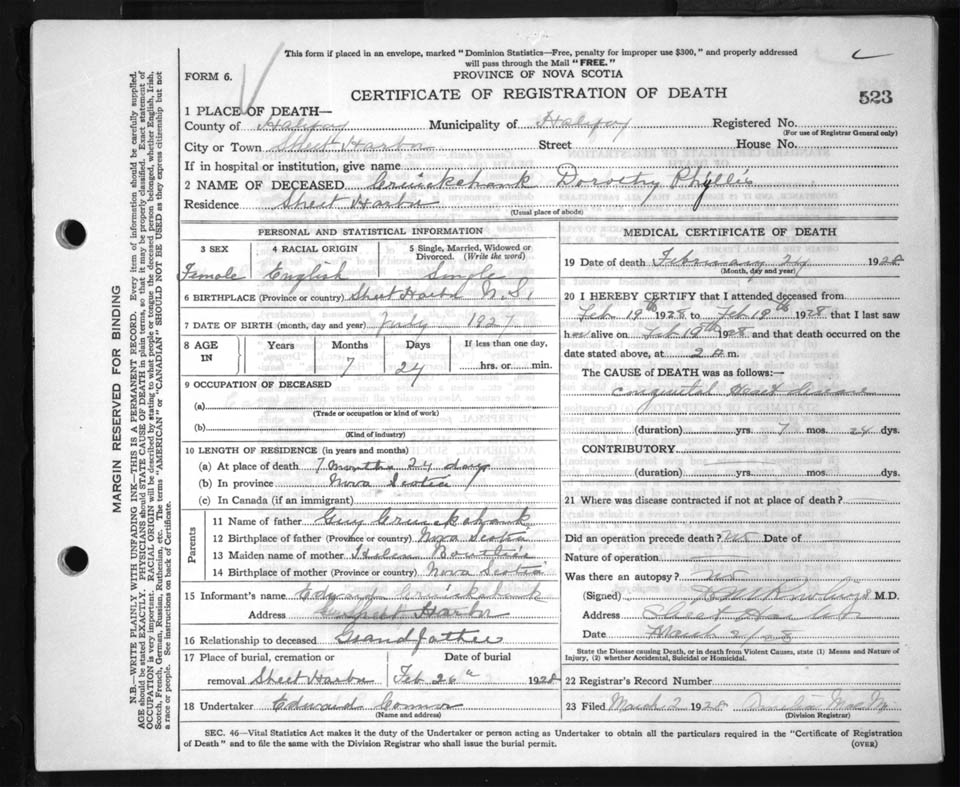 This form if placed in an envelope, marked "Dominion Statistics—Free, penalty for improper use $300," and properly addressed
will pass through the Mail "FREE."
FORM 6.
PROVINCE OF NOVA SCOTIA
CERTIFICATE OF REGISTRATION OF DEATH
523
1 PLACE OF DEATH—
County of Halifax Municipality of Halifax Registered No.
(For use of Registrar General only)
City or Town Sheet Harbor Street House No.
If in hospital or institution, give name
2 NAME OF DECEASED Cruickshank Dorothy Phyllis
Residence Sheet Harbor
(Usual place of abode)
PERSONAL AND STATISTICAL INFORMATION
3 SEX 4 RACIAL ORIGIN 5 Single, Married, Widowed or Divorced. (Write the word)
Female English Single
6 BIRTHPLACE (Province or country) Sheet Harbor N.S.
7 DATE OF BIRTH (month, day and year) July 1927
8 AGE IN Years Months Days If less than one day,
7 24 hrs. or min.
9 OCCUPATION OF DECEASED
(a)
(Trade or occupation or kind of work)
(b)
(Kind of industry)
10 LENGTH OF RESIDENCE (in years and months)
(a) At place of death 7 months 24 days
(b) In province Nova Scotia
(c) In Canada (if an immigrant)
Parents
11 Name of father Guy Cruickshank
12 Birthplace of father (Province or country) Nova Scotia
13 Maiden name of mother Helen
14 Birthplace of mother (Province or country) Nova Scotia
15 Informant's name Edward Cruickshank
Address Sheet Harbor
16 Relationship to deceased Grandfather
17 Place of burial, cremation or removal Sheet Harbor Date of burial Feb 26th 1928
18 Undertaker Edward Connor
(Name and address)
MEDICAL CERTIFICATE OF DEATH
19 Date of death February 24 1928
(Month, day and year)
20 I HEREBY CERTIFY that I attended deceased from
Feb 19th 1928 to Feb 19th 1928 that I last saw
her alive on Feb 19th 1928 and that death occurred on the
date stated above, at 2 m.
The CAUSE OF DEATH was as follows:—
Congenital Heart Disease
(duration) yrs. 7 mos. 24 dys.
CONTRIBUTORY.
(duration) yrs. mos. dys.
21 Where was disease contracted if not at place of death?
Did an operation precede death? No Date of
Nature of operation
Was there an autopsy? No
(Signed) M.D.
Address Sheet Harbor
Date March 2/28
State the Disease causing Death, or in death from Violent Causes, state (1) Means and Nature of
Injury, (2) whether Accidental, Suicidal or Homicidal.
22 Registrar's Record Number
23 Filed March 2 1928
(Division Registrar)
SEC. 46—Vital Statistics Act makes it the duty of the Undertaker or person acting as Undertaker to obtain all the particulars required in the "Certificate of Registration
of Death" and to file the same with the Division Registrar who shall issue the burial permit.
(OVER)
MARGIN RESERVED FOR BINDING
N.B.—WRITE PLAINLY WITH UNFADING INK—THIS IS A PERMANENT RECORD. Every item of information should be carefully supplied.
AGE should be stated EXACTLY. PHYSICIANS should STATE CAUSE OF DEATH in plain terms, so that it may be properly classified. Exact statement of
OCCUPATION is very important. RACIAL ORIGIN will be described by stating to what people or tongue the deceased person belonged, whether English, Irish,
Scotch, French, German, Russian, Ruthenian, etc. The terms "AMERICAN" or "CANADIAN" SHOULD NOT BE USED as they express citizenship but not
a race or people. See instructions on back of Certificate.